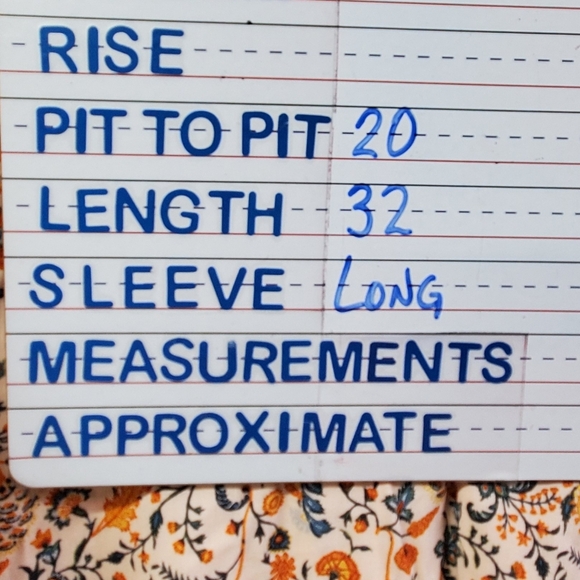 RISE
PIT TO PIT 20
LENGTH 32
SLEEVE LONG
MEASUREMENTS
APPROXIMATE